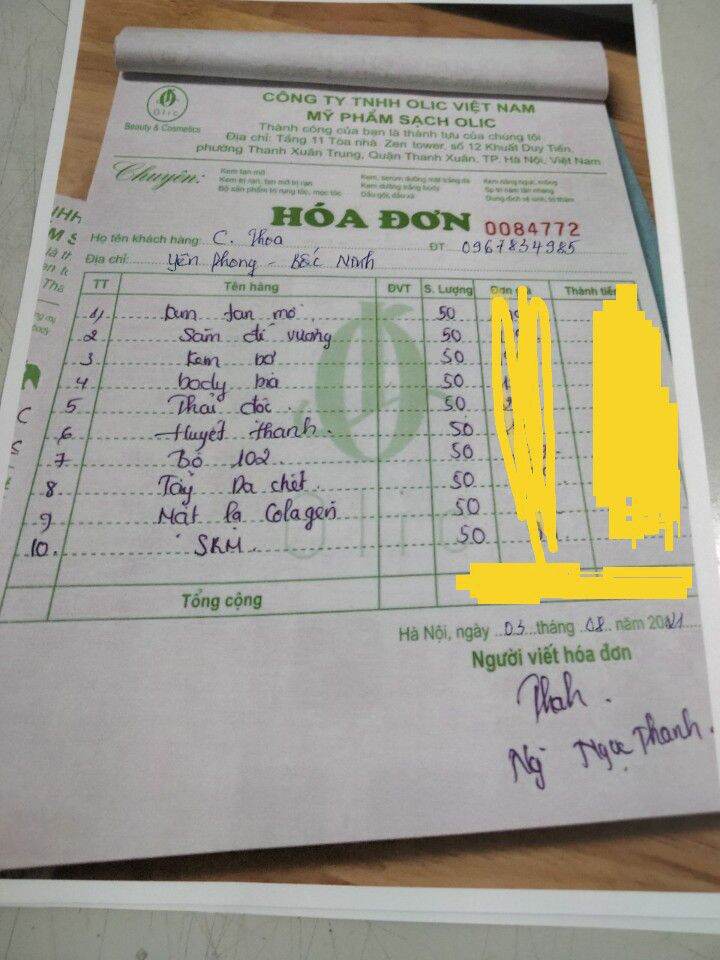 CÔNG TY TNHH OLIC VIỆT NAM
MỸ PHẨM SẠCH OLIC
Olic
Beauty & Cosmetics
Thành công của bạn là thành tựu của chúng tôi
Địa chỉ: Tầng 11 Tòa nhà Zen tower, số 12 Khuất Duy Tiến,
phường Thanh Xuân Trung, Quận Thanh Xuân, TP. Hà Nội, Việt Nam
Chuyên:
Kem tan mỡ
Kem trị rạn, tan mỡ trị rạn
Bộ sản phẩm trị rụng tóc, mọc tóc
Kem, serum dưỡng mặt trắng da
Kem dưỡng trắng body
Dầu gội, dầu xả
Kem nâng ngực, mông
Sp trị nám tàn nhang
Dung dịch vệ sinh, trị thâm
HÓA ĐƠN 0084772
Họ tên khách hàng: C. Thoa ĐT: 0967834985
Địa chỉ: Yên Phong - Bắc Ninh
TT Tên hàng ĐVT S. Lượng Đơn Thành tiền
1 Kem tan mỡ 50
2 Sâm đế vương 50
3 Kem bơ 50
4 body bia 50
5 Thải độc 50
6 Huyết thanh 50
7 Bộ 102 50
8 Tẩy Da chết 50
9 Mặt nạ Colagen 50
10. SKM 50
Olic
Tổng cộng
Hà Nội, ngày 03 tháng 08 năm 2021
Người viết hóa đơn
Thah
Ng Ngọc Thanh